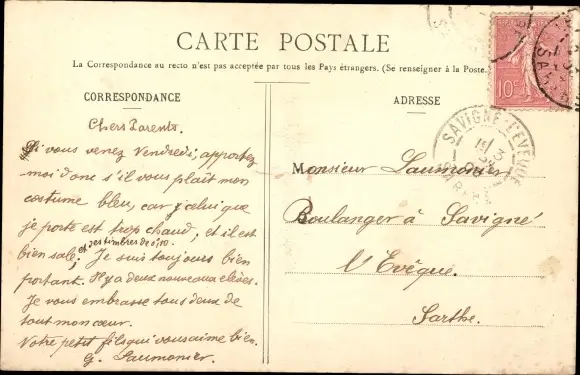 CARTE POSTALE
La Correspondance au recto n'est pas acceptée par tous les Pays étrangers. (Se renseigner à la Poste.
CORRESPONDANCE
Chers Parents.
Si vous venez Vendredi, apportez
moi donc s'il vous plaît mon
costume bleu, car celui que
je porte est trop chaud, et il est
bien sale; et des timbres de 0,10. Je suis toujours bien
portant. Il y a deux nouveaux élèves.
Je vous embrasse tous deux de
tout mon cœur.
Votre petit fils qui vous aime bien.
G. Laumonier.
ADRESSE
Monsieur Laumonier
Boulanger à Savigné
l'Evêque.
Sarthe.
10c
SAVIGNÉ-L'EVÊQUE